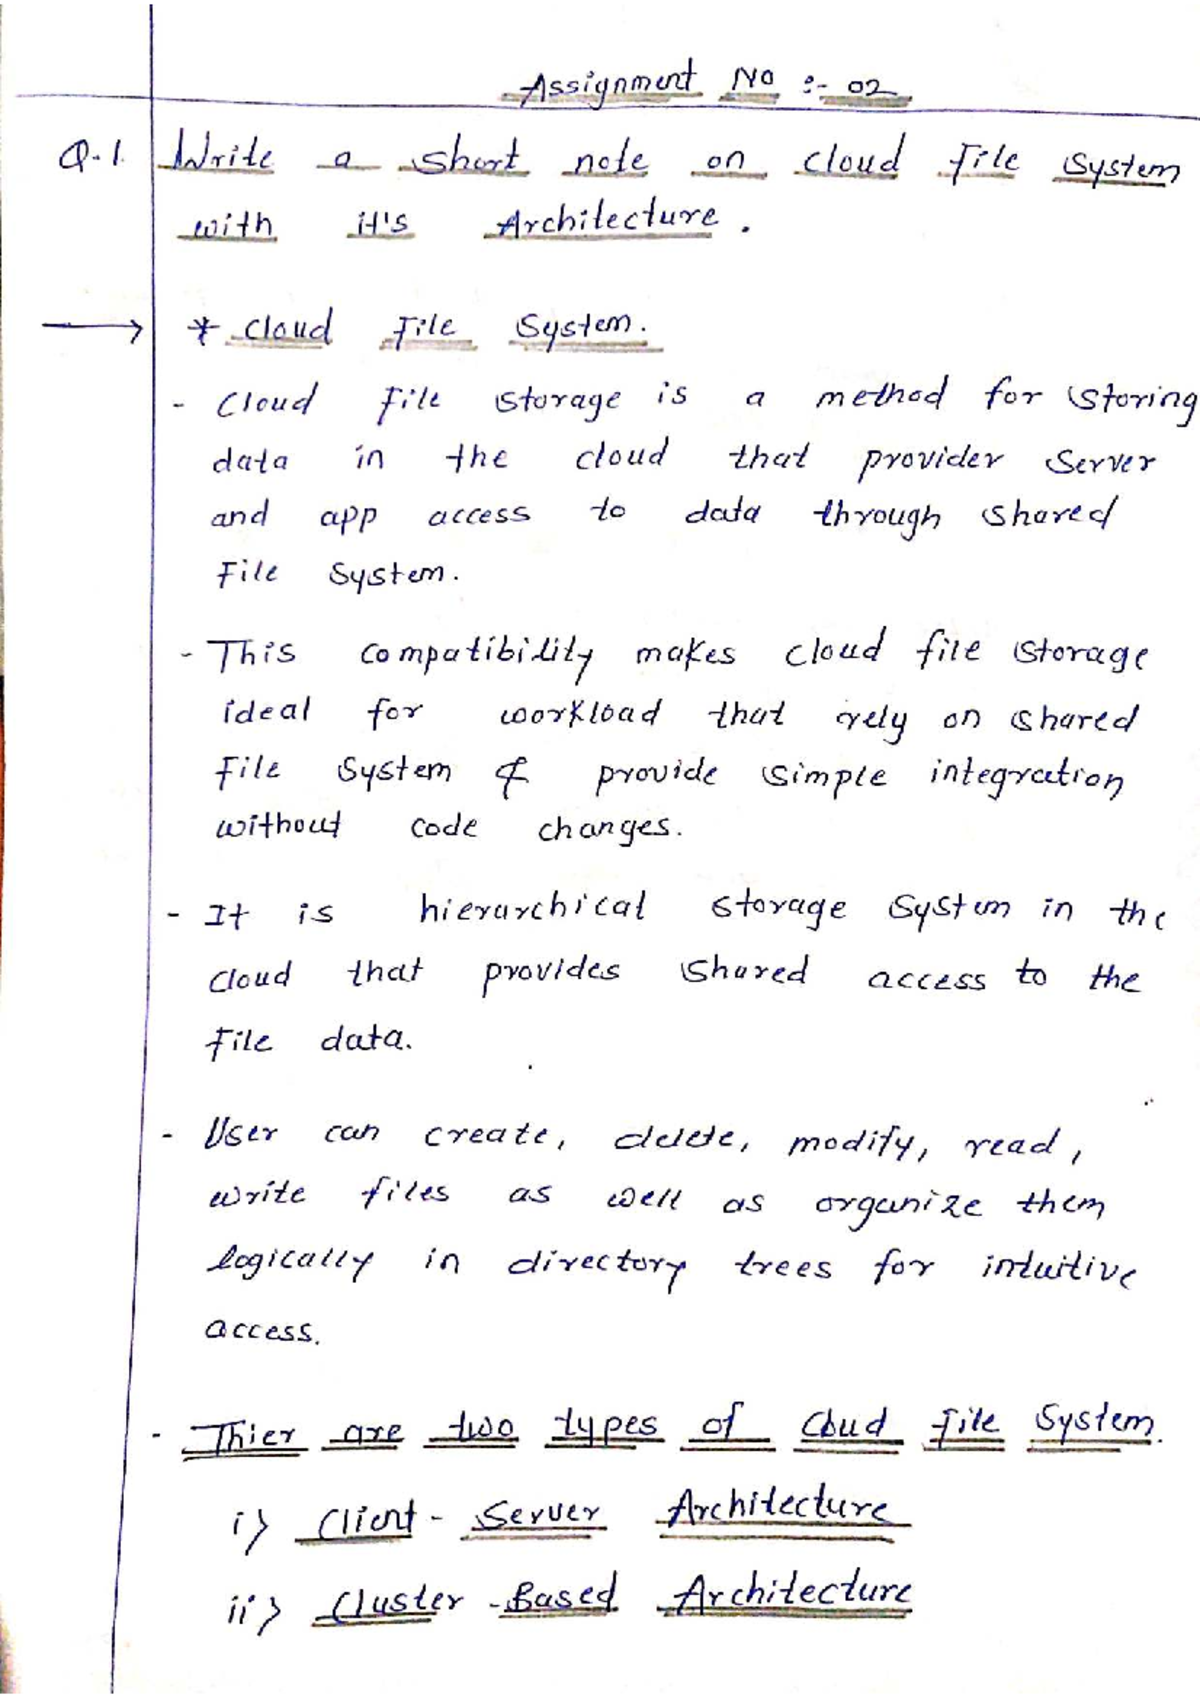 Assignment No :- 02
Q-1. Write a short note on cloud file system
with it's Architecture.
→ * Cloud File System.
- Cloud file storage is a method for storing
data in the cloud that provider server
and app access to data through shared
File System.
- This compatibility makes cloud file storage
ideal for workload that rely on shared
file system & provide simple integration
without code changes.
- It is hierarchical storage system in the
cloud that provides shared access to the
file data.
- User can create, delete, modify, read,
write files as well as organize them
logically in directory trees for intuitive
access.
- Thier are two types of Cloud file System.
i> Client-Server Architecture
ii> Cluster-Based Architecture